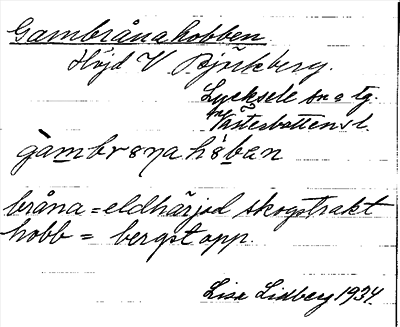 Gambrånahobben
Höjd V Björkberg.
Lycksele sn o tg.
Västerbottens l.
gàmbrɷna hɷ̀ben
bråna = eldhärjad skogstrakt
hobb = bergstopp.
Lisa Lidberg 1934.